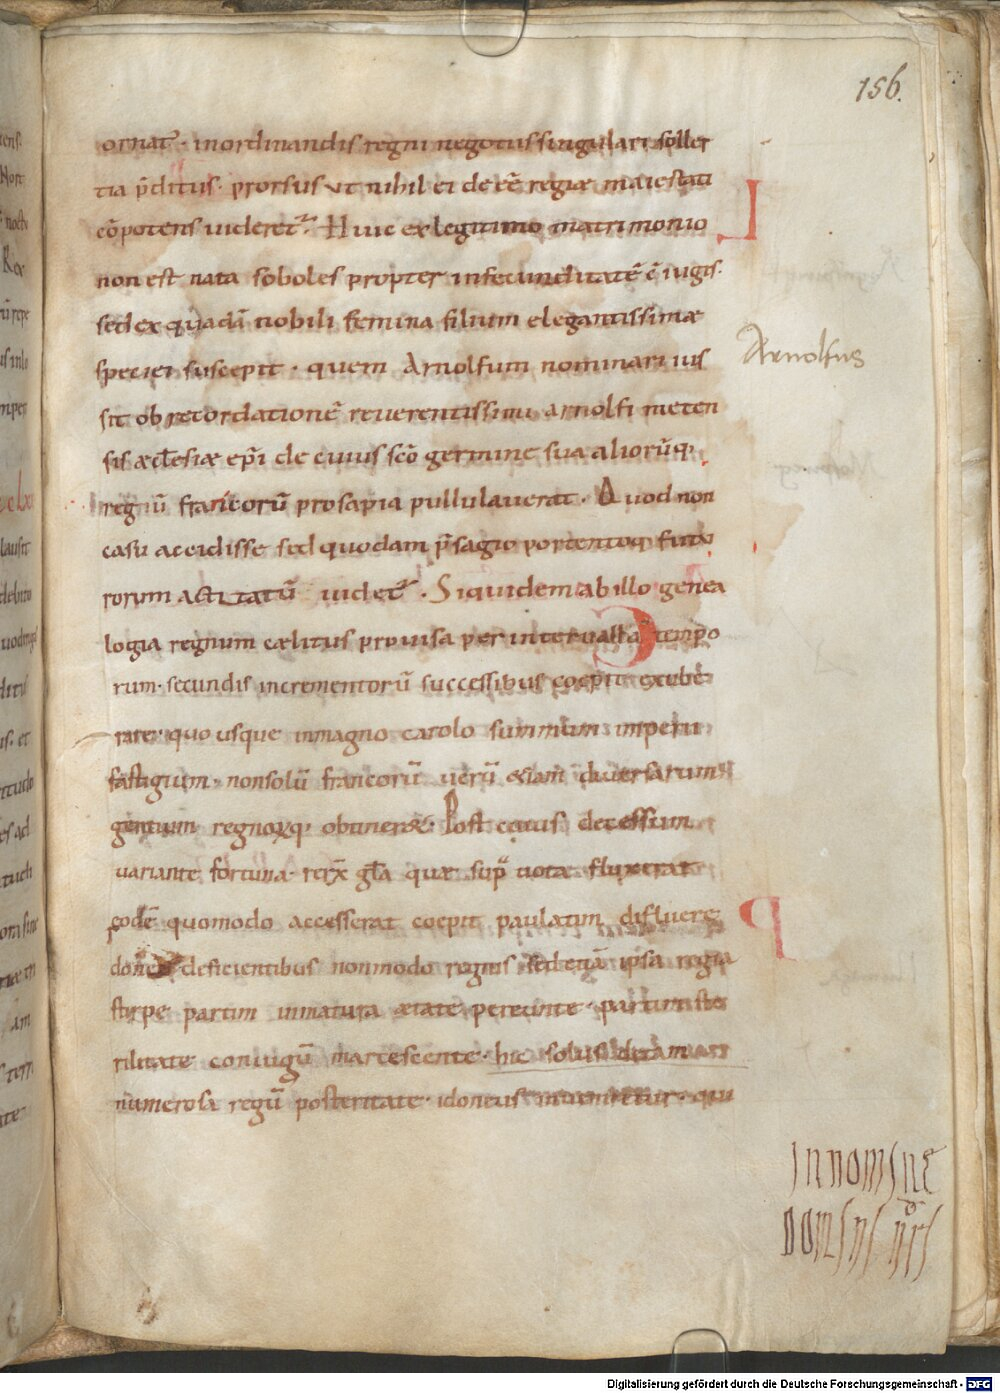 156.
ornat᷑ · inordinandis regni negotiis singulari soller
tia p̄ditus · prorsus ut nihil ei de eē regiae maiestati
cōpotens uideret᷑. Huic ex legitimo matrimonio
non est nata soboles propter infecunditatē c̄iugis·
sed ex quadā nobili femina filium elegantissimae
speciei suscepit · quem Arnolfum nominari ius
Arnolfus
sit ob recordationē reuerentissimi arnolfi meten
sis æclesiae ep̄i de cuius sc̄o germine sua aliorūq·
regū francorū prosapia pullulauerat · Quod non
casu accidisse sed quodam p̄sagio portentoq; futu
rorum actitatū uidet᷑. Siquidem ab illo genea
logia regnum cælitus prouisa per interualla tempo
rum · secundis incrementorū successibus coepit exube
rare · quo usque in magno carolo summum imperii
fastigium · non solū francorū uerū etiam diuersarum
gentium regnorūq· obtineret. Post cuius decessum
uariante fortuna · rerū gl̄a quae sup̄ uota fluxerat
eodē quomodo accesserat coepit paulatim difluere
donec deficientibus non modo regnis sed etiā ipsa regia
stirpe partim inmatura ætate pereunte · partim ste
rilitate coniugū marcescente · hic solus de tam
numerosa regū posteritate · idoneus inueniretur · qui
In nomine
domini nr̄i